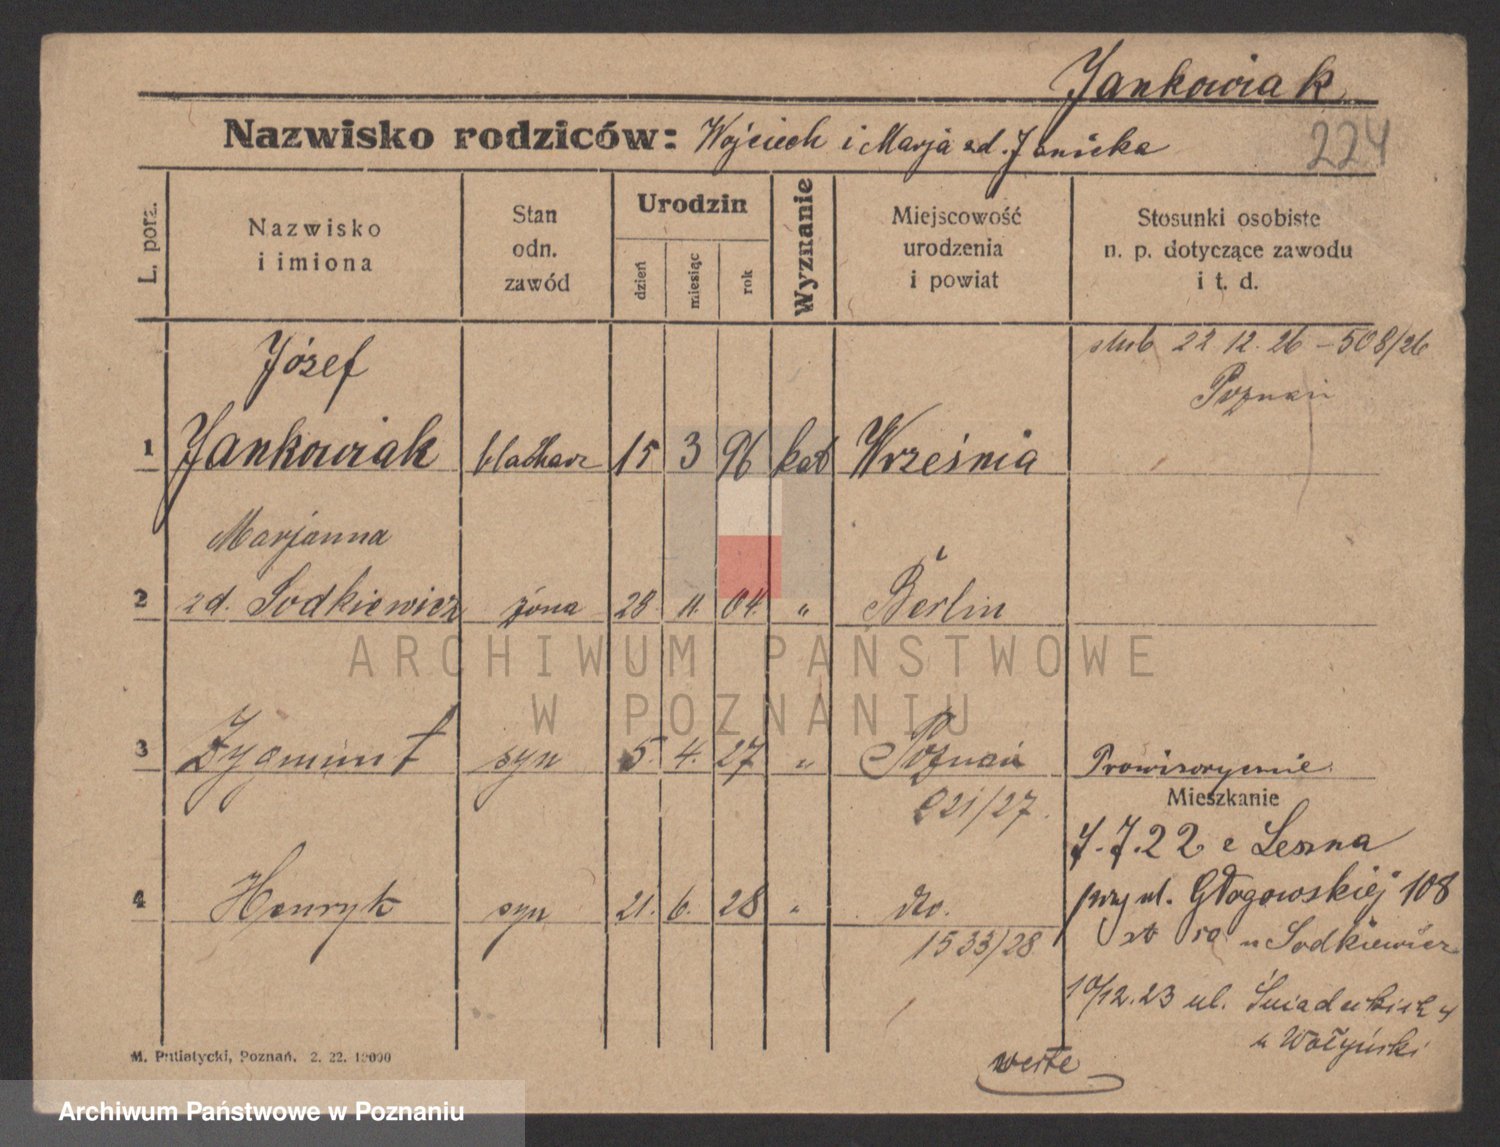 Jankowiak
Nazwisko rodziców: Wojciech i Marja zd. Janicka
224
L. porz.
Nazwisko i imiona
Stan odn. zawód
Urodzin
dzień
miesiąc
rok
Wyznanie
Miejscowość urodzenia i powiat
Stosunki osobiste n. p. dotyczące zawodu i t. d.
ślub 22.12.26 – 508/26
Poznań
Józef
1 Jankowiak blacharz 15 3 96 kat Września
Marjanna
2 zd. Sodkiewicz żona 28 11. 04. " Berlin
3 Zygmunt syn 5. 4. 27 " Poznań
821/27.
Prowizorycznie
Mieszkanie
7.7.22 z Leszna
przy ul. Głogowskiej 108
u Sodkiewicz
4 Henryk syn 21. 6. 28 " dto.
1533/28
10/12.23 ul. Śniadeckich
u Wołyński
M. Putiatycki, Poznań. 2. 22. 12000
verte
ARCHIWUM PAŃSTWOWE
W POZNANIU
Archiwum Państwowe w Poznaniu